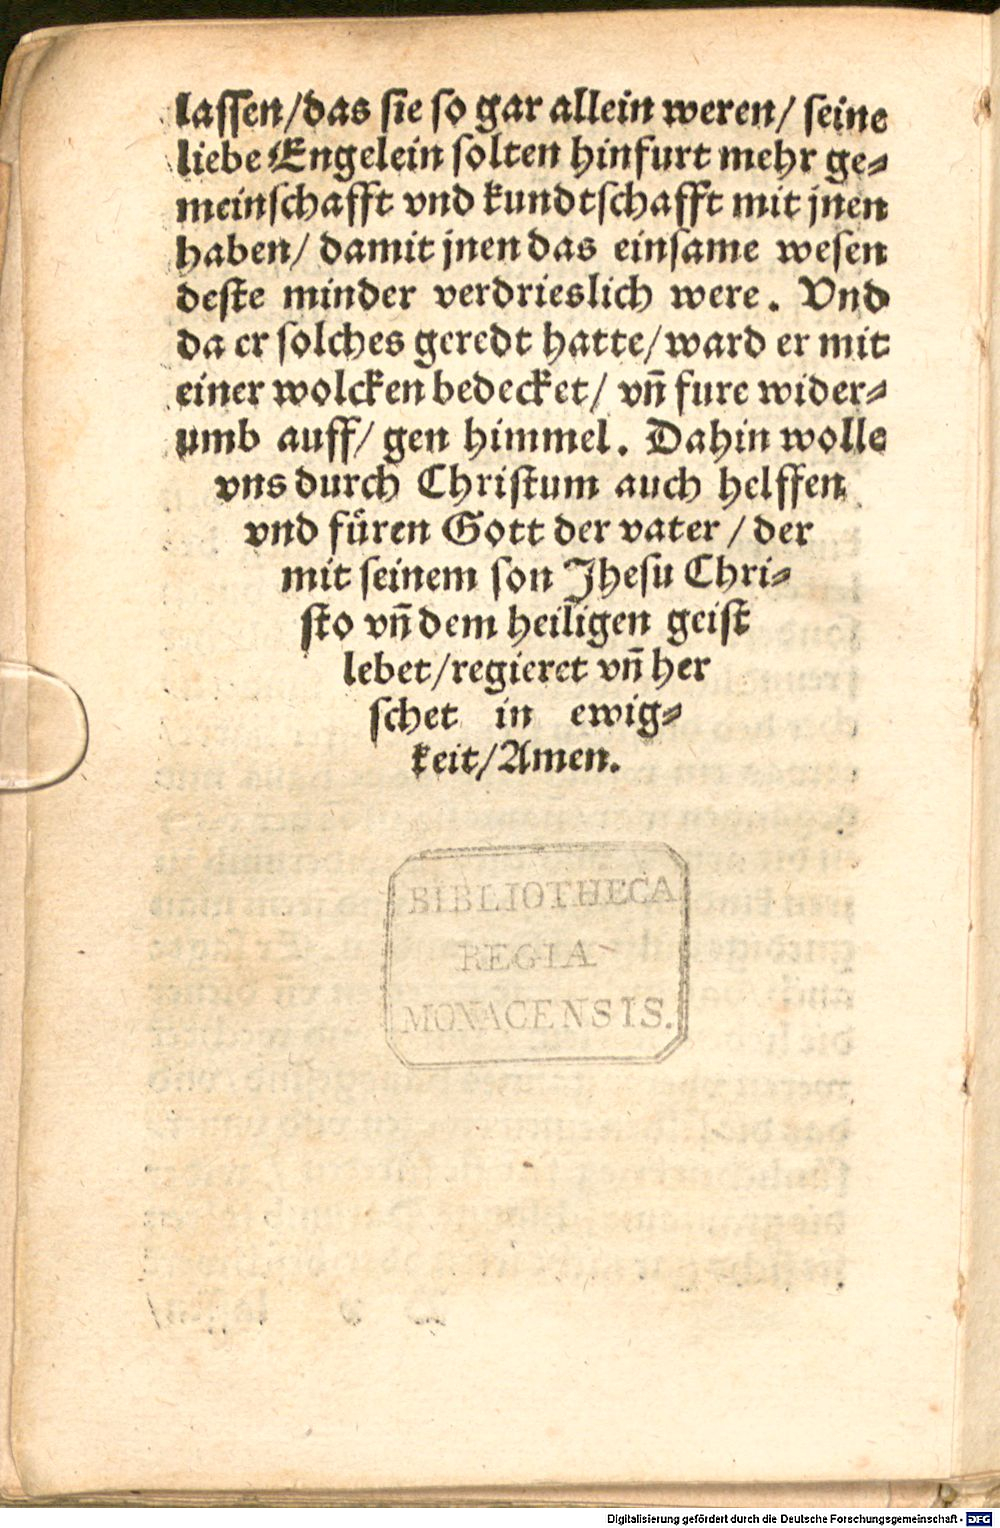 lassen/das sie so gar allein weren/ seine
liebe Engelein solten hinfurt mehr ge-
meinschafft vnd kundtschafft mit jnen
haben/ damit jnen das einsame wesen
deste minder verdrieslich were. Vnd
da er solches geredt hatte/ward er mit
einer wolcken bedecket/ vñ fure wider-
umb auff/ gen himmel. Dahin wolle
vns durch Christum auch helffen
vnd füren Gott der vater/der
mit seinem son Jhesu Chri-
sto vñ dem heiligen geist
lebet/regieret vñ her
schet in ewig-
keit/Amen.
BIBLIOTHECA
REGIA
MONACENSIS.
Digitalisierung gefördert durch die Deutsche Forschungsgemeinschaft - DFG